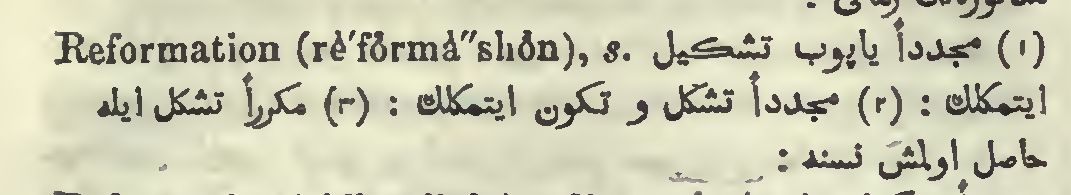 Reformation (rè′fŏrmà″shŏn), s. (١) مجدداً ياپوب تشكيل
ايتمكلك : (٢) مجدداً تشكل و تكون ايتمكلك : (٣) مكرراً تشكل ايله
حاصل اولمش نسنه :